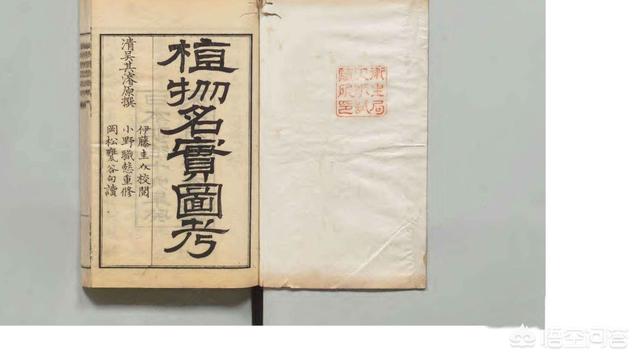 衛生局
植物名實圖考
清吳其濬原撰
伊藤圭介校閱
小野職愨重修
岡松甕谷句讀
悟空问答